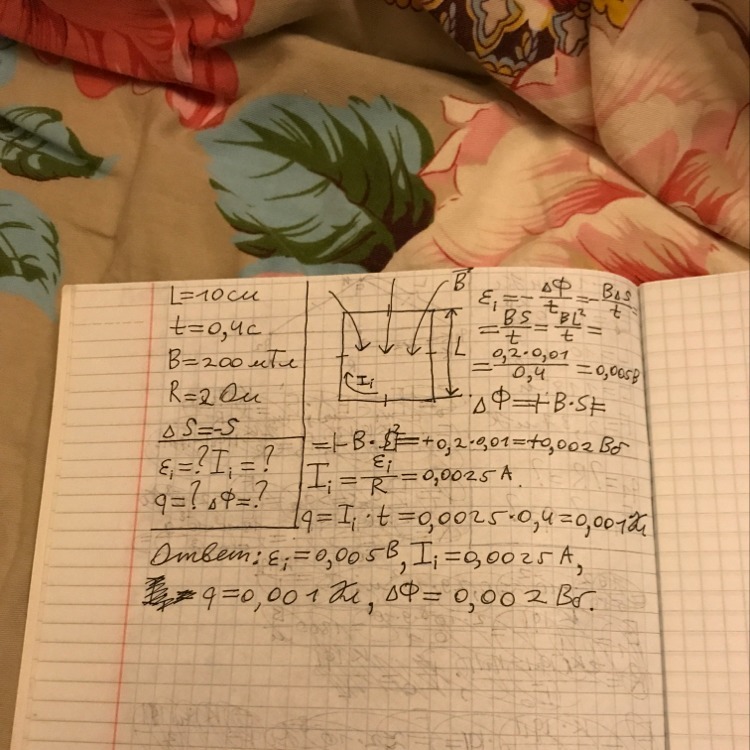 L=10см
t=0,4с
B=200мТл
R=2Ом
ΔS=-S
εᵢ=? Iᵢ=?
q=? ΔΦ=?
B⃗
L
Iᵢ
εᵢ=-ΔΦ/t=-BΔS/t=
=BS/t=BL²/t=
=0,2·0,01/0,4=0,005В
ΔΦ=|-B·S|=
=|-B·L²|=+0,2·0,01=+0,002 Вб
Iᵢ=εᵢ/R=0,0025А.
q=Iᵢ·t=0,0025·0,4=0,001Кл
Ответ: εᵢ=0,005В, Iᵢ=0,0025А,
q=0,001 Кл, ΔΦ=0,002 Вб.